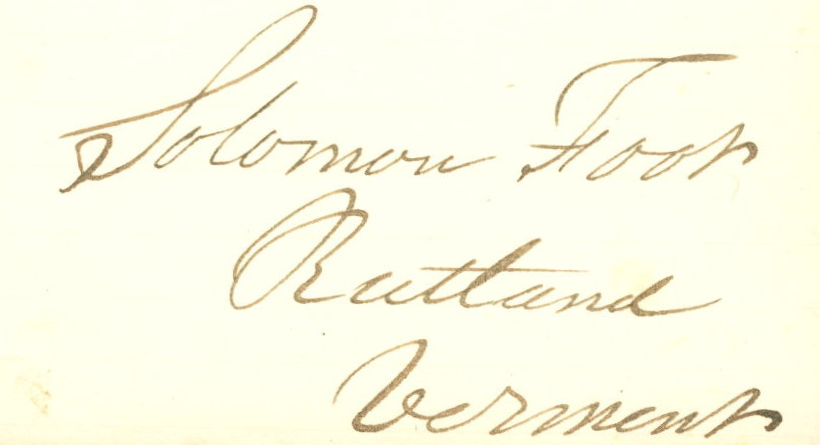 Solomon Foot
Rutland
Vermont